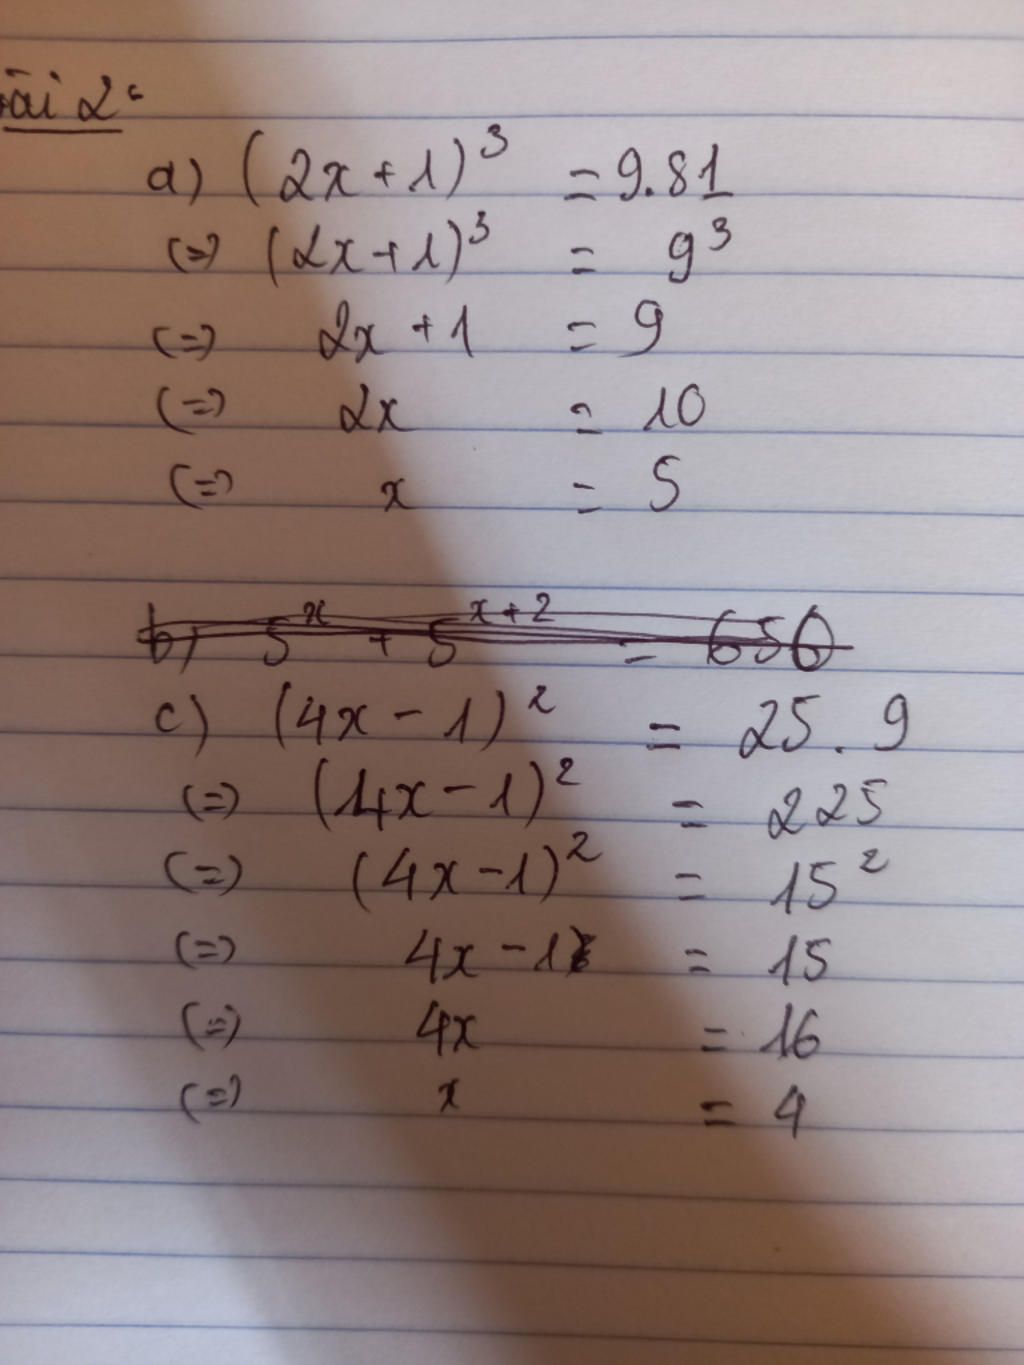 Bài 2:
a) (2x+1)³ = 9.81
(=) (2x+1)³ = 9³
(=) 2x +1 = 9
(=) 2x = 10
(=) x = 5
b) 5ˣ + 5ˣ⁺² = 650
c) (4x - 1)² = 25 . 9
(=) (4x - 1)² = 225
(=) (4x -1)² = 15²
(=) 4x - 1 = 15
(=) 4x = 16
(=) x = 4